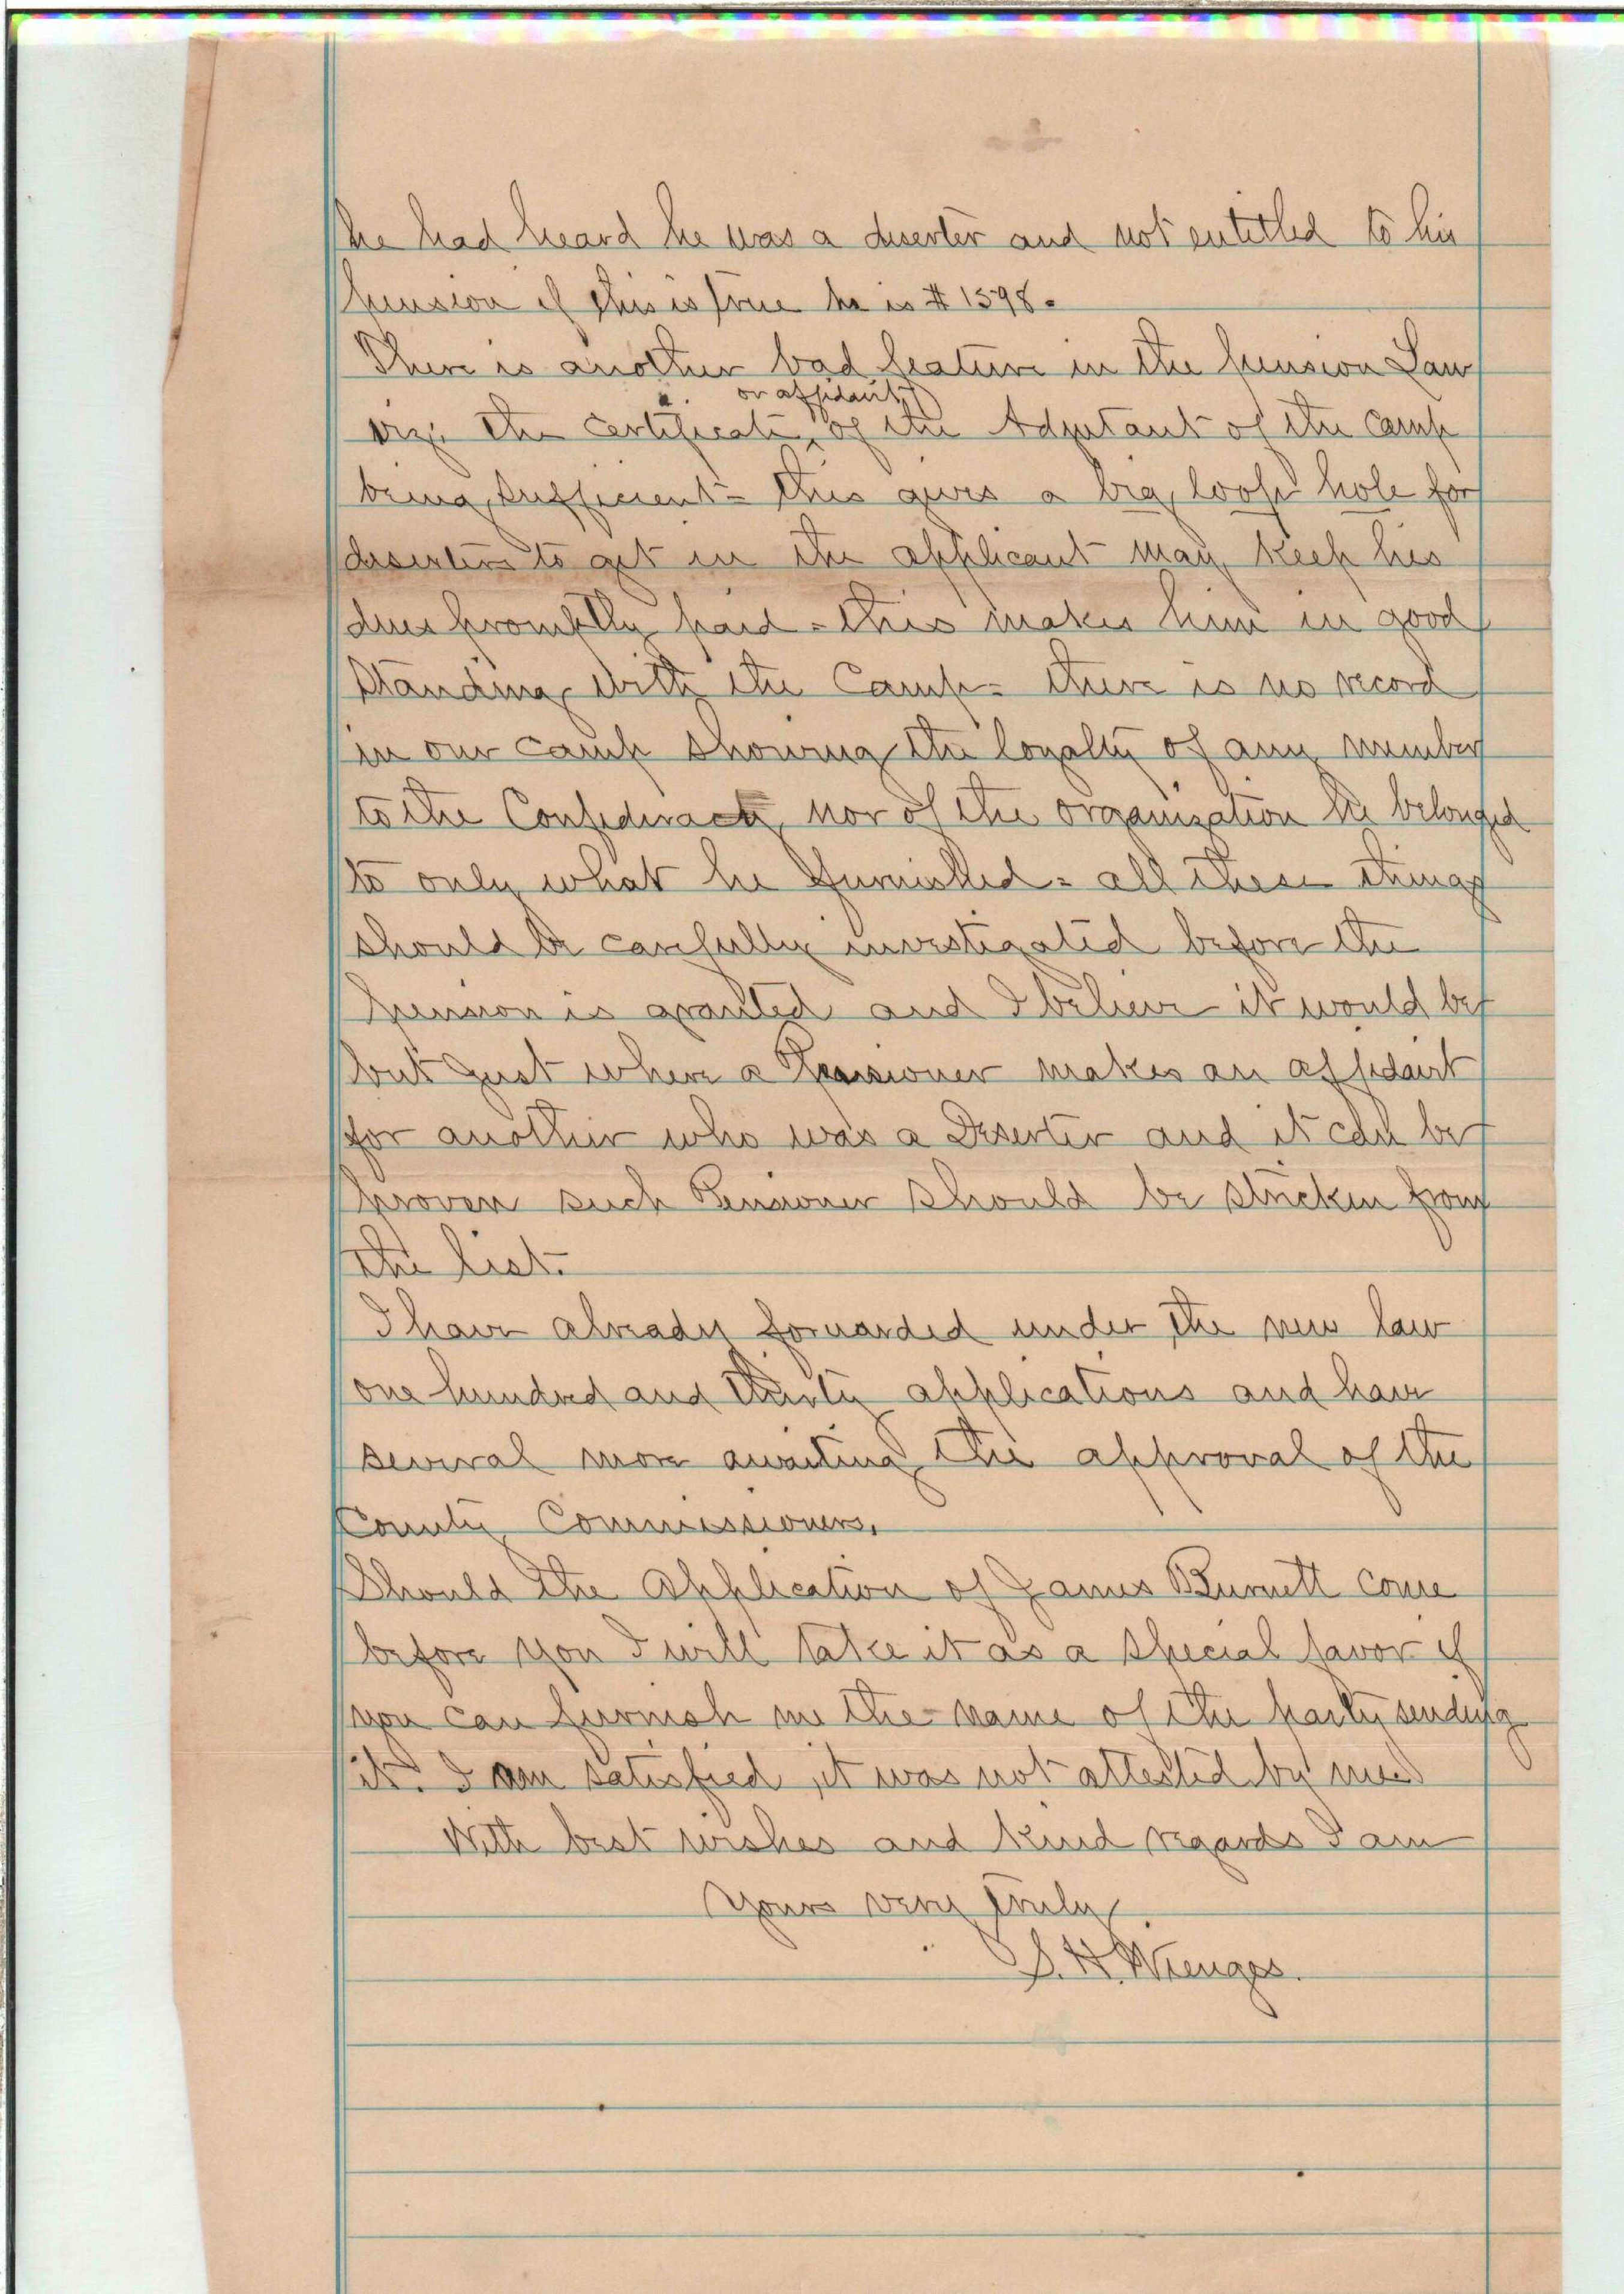 he had heard he was a deserter and not entitled to his
pension if this is true he is # 1598.
There is another bad feature in the pension Law
or affidavit
viz: the certificate of the Adjutant of the camp
being sufficient - this gives a big loop hole for
deserters to get in the applicant may keep his
dues promptly paid - this makes him in good
standing with the Camp - there is no record
in our camp showing the loyalty of any member
to the Confederacy, nor of the organization he belonged
to only what he furnished - all these things
should be carefully investigated before the
pension is granted and I believe it would be
but just where a Pensioner makes an affidavit
for another who was a Deserter and it can be
proven such Pensioner should be stricken from
the list.
I have already forwarded under the new law
one hundred and thirty applications and have
several more awaiting the approval of the
County Commissioners.
Should the Application of James Burnett come
before you I will take it as a special favor if
you can furnish me the name of the party sending
it. I am satisfied it was not attested by me
With best wishes and kind regards I am
Yours very truly
S. H. Wienges.